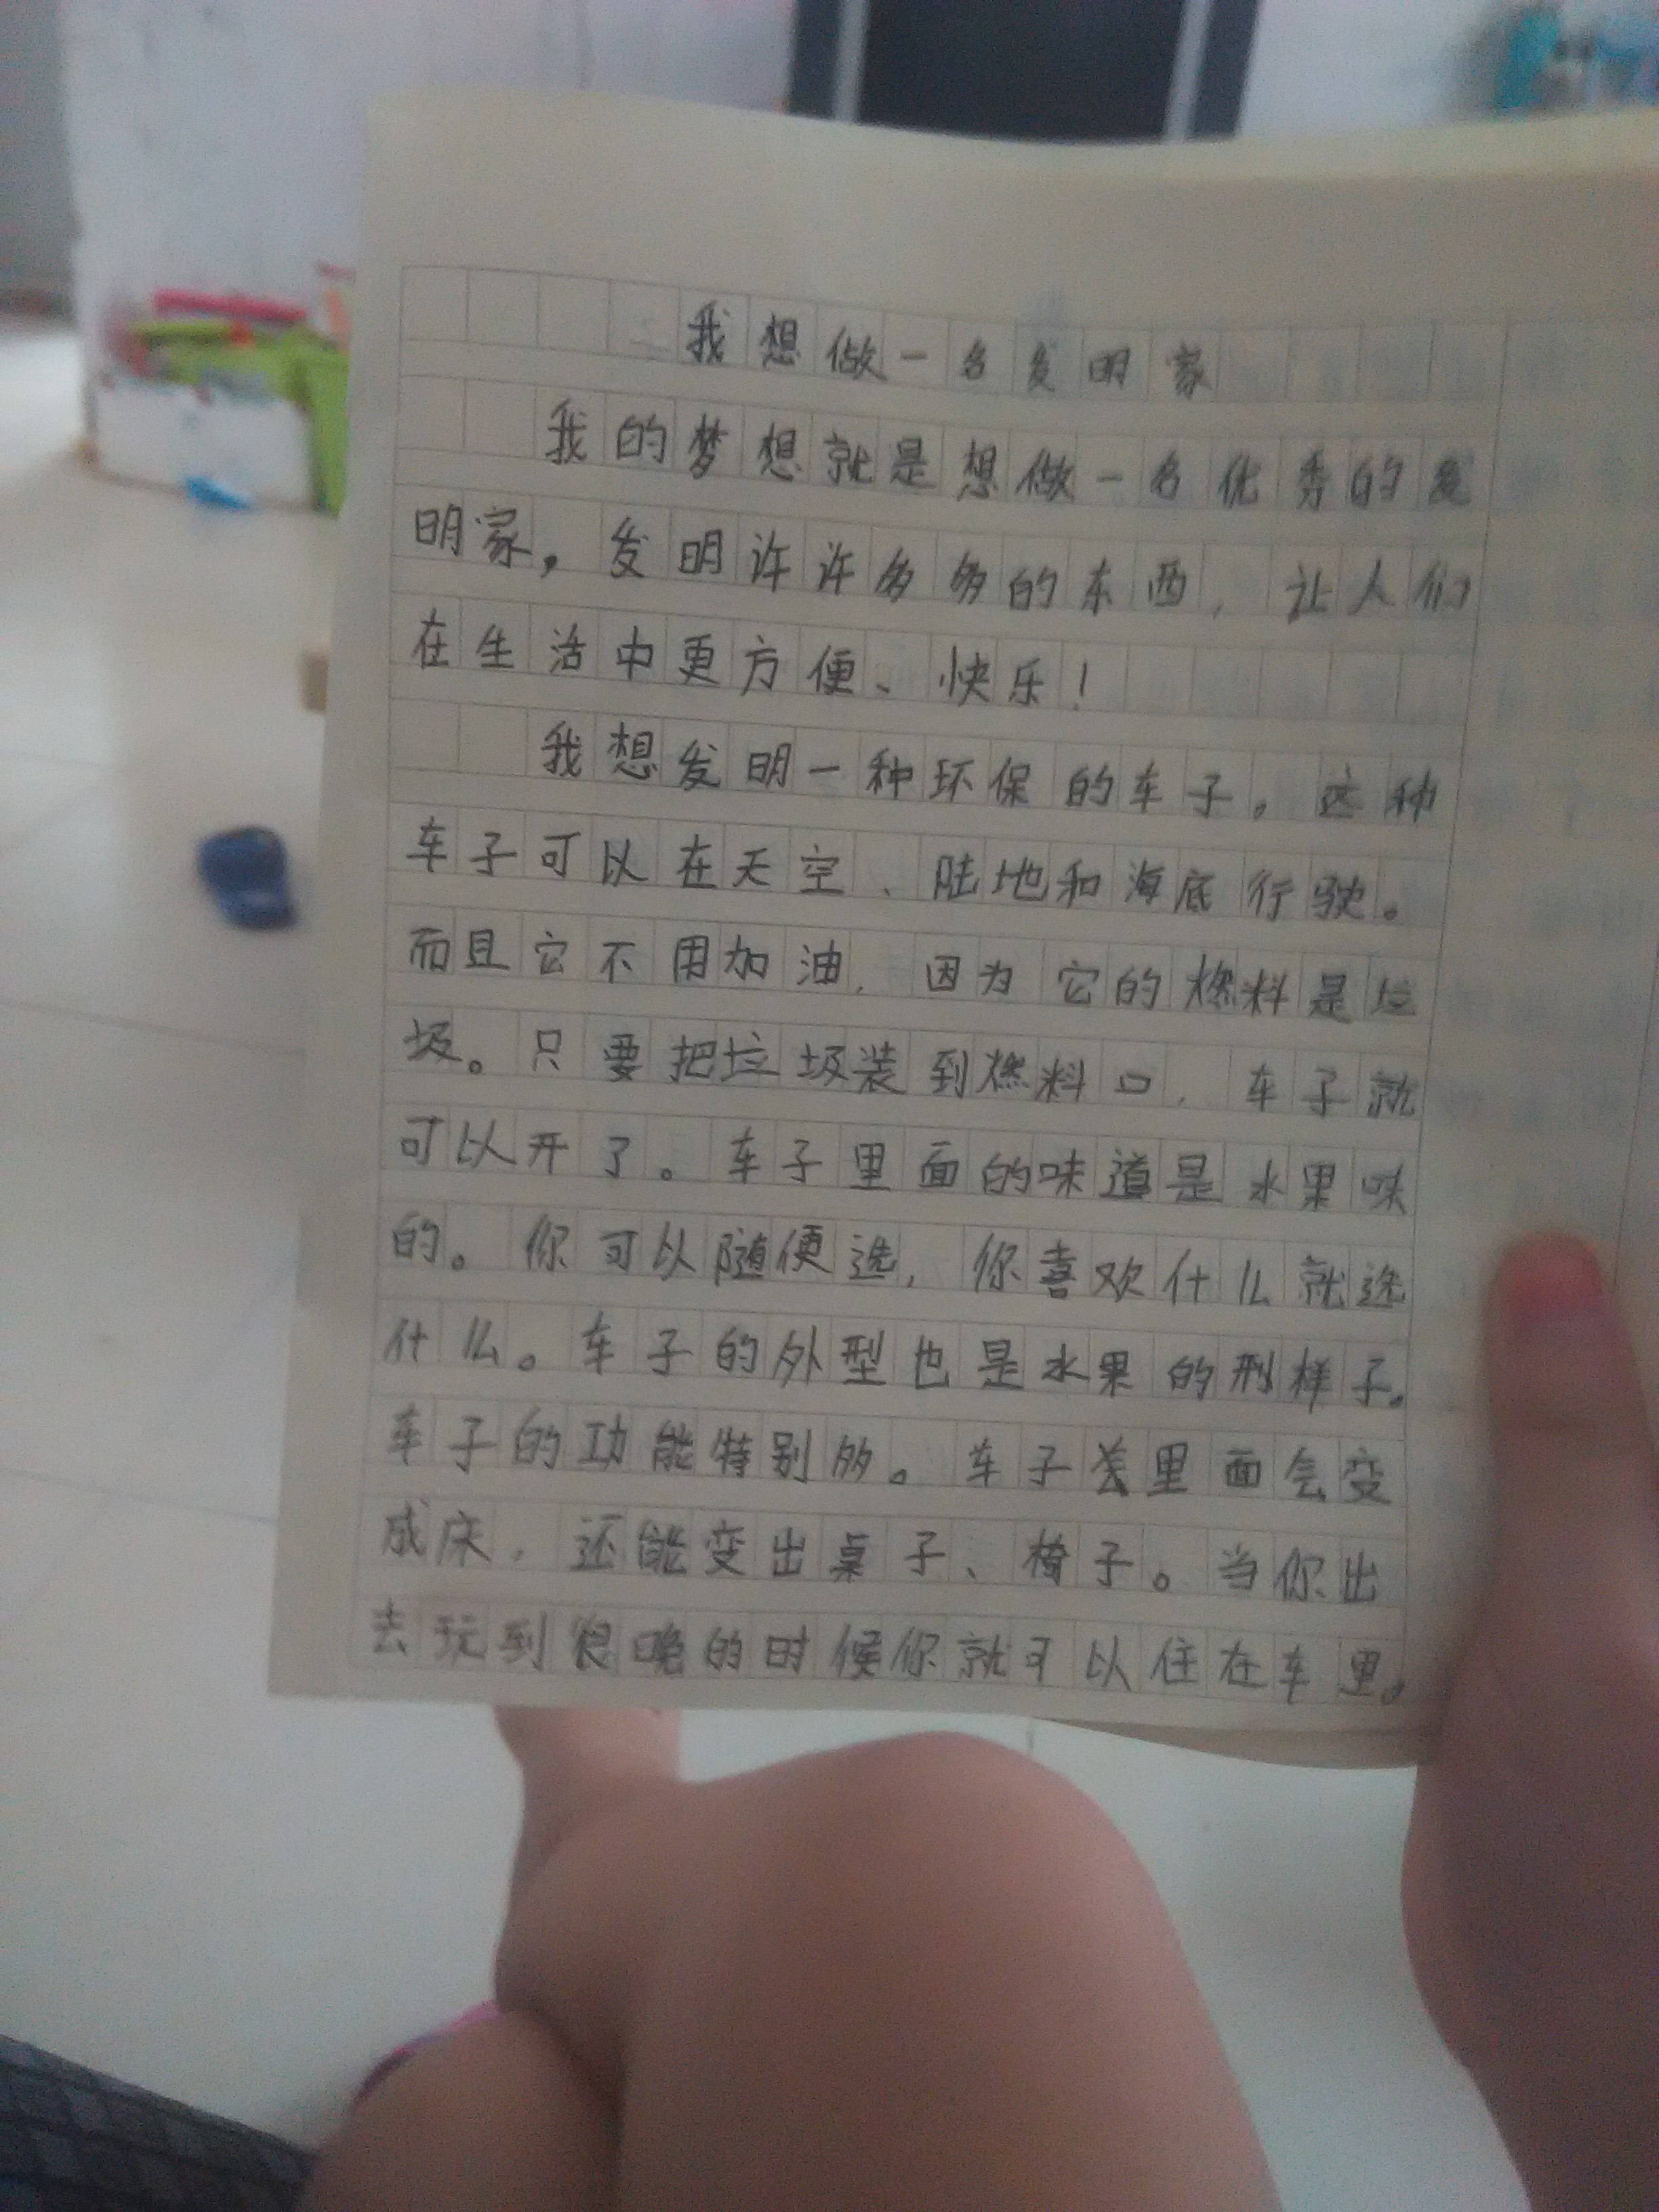 我想做一名发明家
我的梦想就是想做一名优秀的发
明家，发明许许多多的东西，让人们
在生活中更方便、快乐！
我想发明一种环保的车子。这种
车子可以在天空、陆地和海底行驶。
而且它不用加油，因为它的燃料是垃
圾。只要把垃圾装到燃料口，车子就
可以开了。车子里面的味道是水果味
的。你可以随便选，你喜欢什么就选
什么。车子的外型也是水果的形样子。
车子的功能特别多。车子里面会变
成床，还能变出桌子、椅子。当你出
去玩到很晚的时候你就可以住在车里。